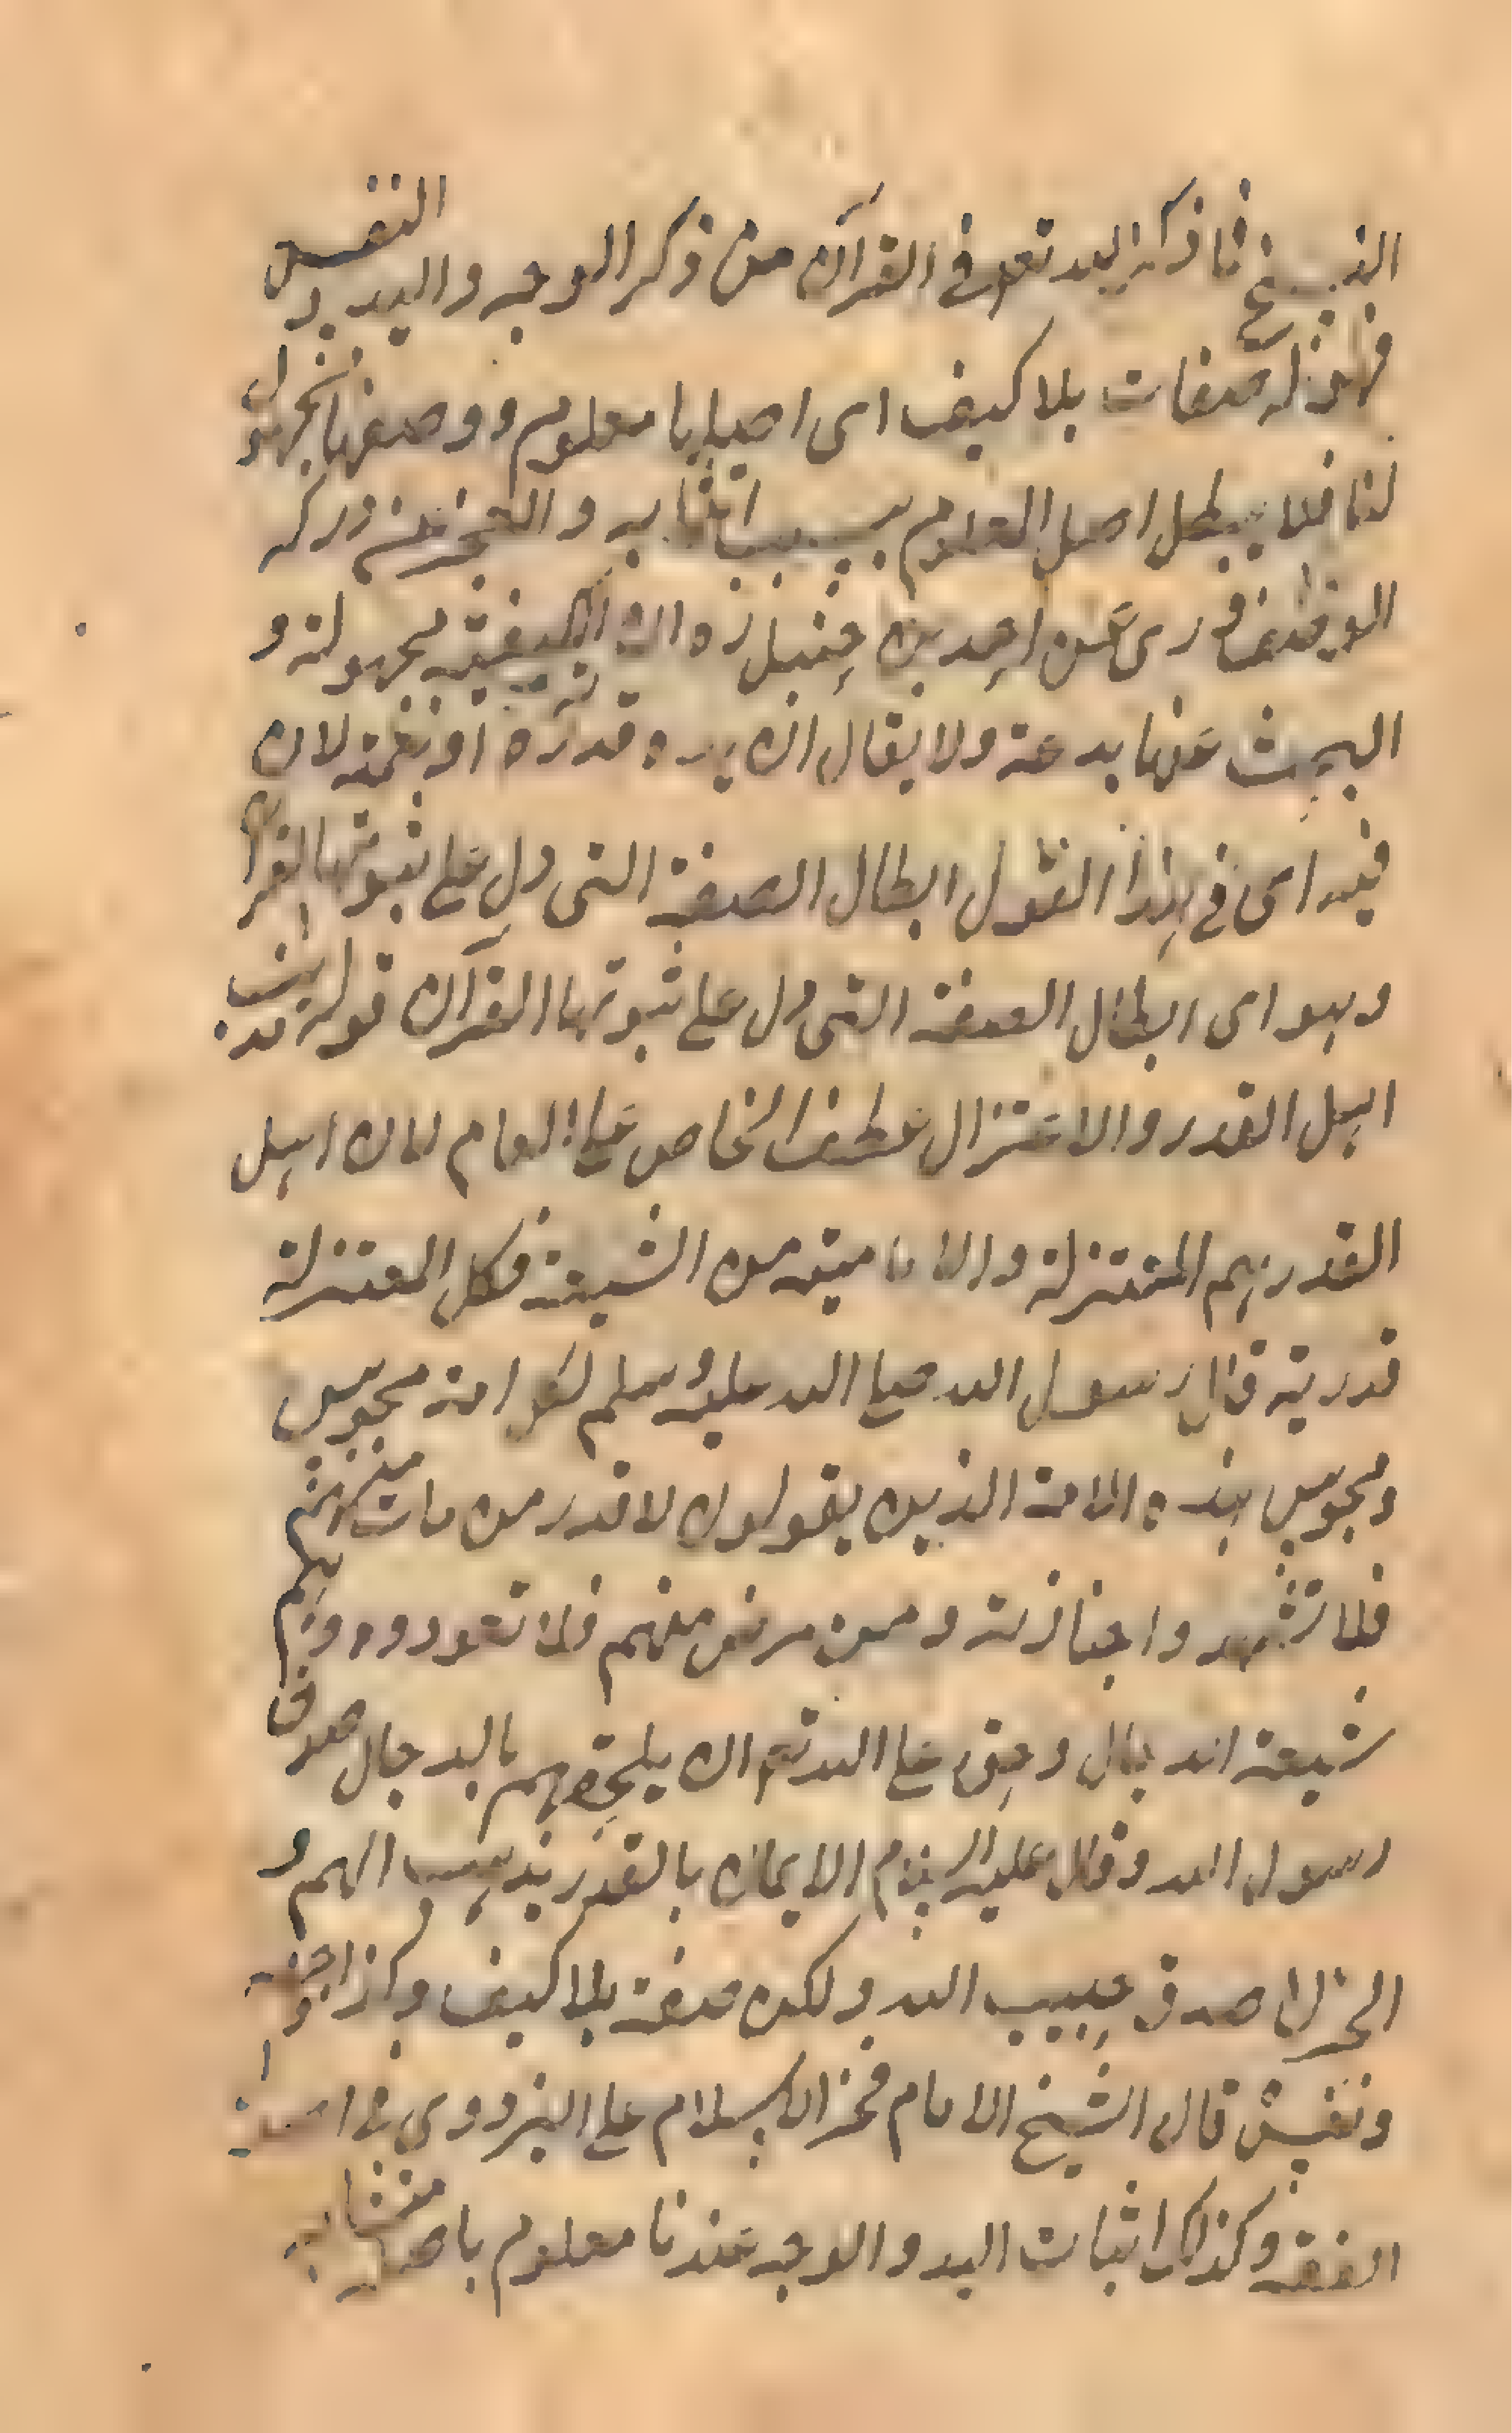 فما ذكر الله تعالى في القرآن من ذكر الوجه واليد والنفس
فهو له صفات بلا كيف اى اصلها معلوم ووصفها مجهول
لنا فلا يبطل اصل المعلوم بسبب التشابه والعجز عن درك
الوصف روى عن احمد بن حنبل ره ان الكيفية مجهولة و
البحث عنها بدعة ولا يقال ان يده قدرته او نعمته لان
فيه اى في هذا القول ابطال الصفة التى دل على ثبوتها القرآن
وهو اى ابطال الصفة التى دل على ثبوتها القرآن قول
اهل القدر والاعتزال عطف الخاص على العام لان اهل
القدر هم المعتزلة والامامية من الشيعة فكل المعتزلة
قدرية قال رسول الله صلى الله عليه وسلم لكل امة مجوس
ومجوس هذه الامة الذين يقولون لا قدر من مات منهم
فلا تشهدوا جنازته ومن مرض منهم فلا تعودوه وهم
شيعة الدجال وحق على الله تع ان يلحقهم بالدجال صدق
رسول الله وقال عليه السلام الايمان بالقدر يذهب الهم و
الحزن صدق حبيب الله ولكن يده صفته بلا كيف وكذا وجهه
ونفسه قال الشيخ الامام فخر الاسلام على البزدوى في اصول
الفقه وكذلك اثبات اليد والوجه عندنا معلوم باصله متشابه